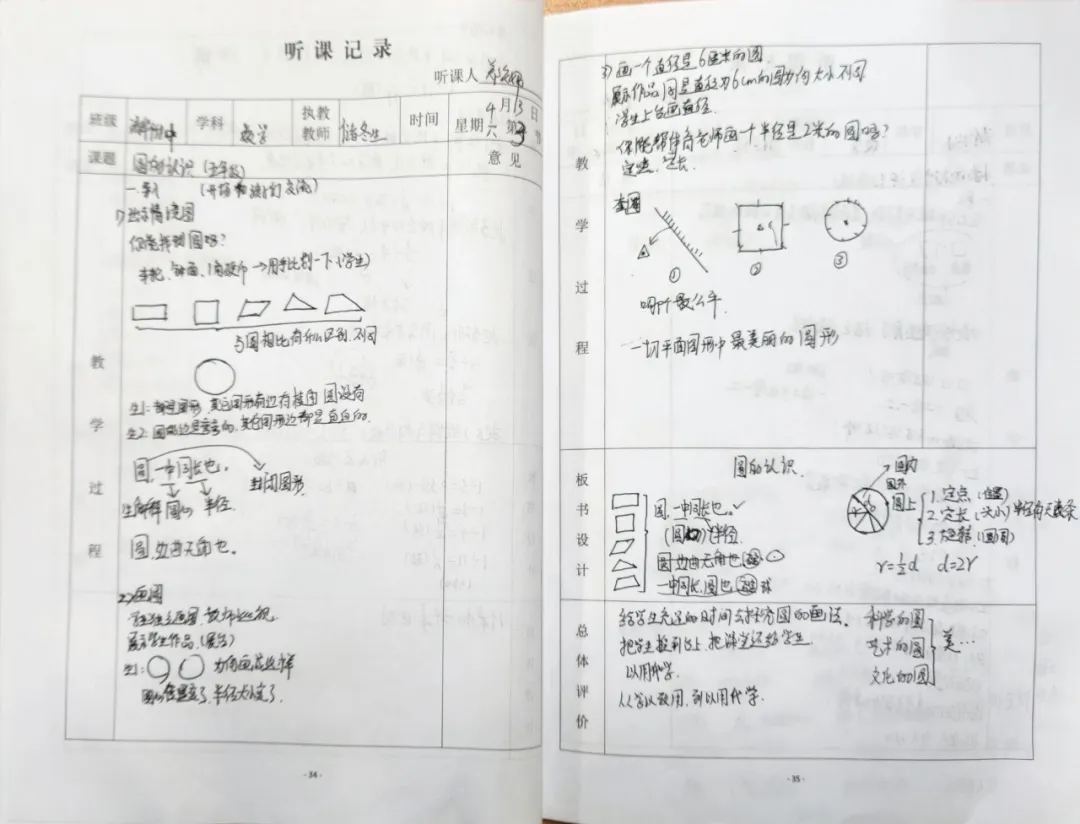 听课记录
听课人
班级 学科 数学 执教教师 时间 4月13日 星期六 第3节
课题 圆的认识 (五年级) 意见
教学过程
一.
你能找到圆吗?
车轮、钟面、1角硬币→用手比划一下(学生)
与圆相比有什么区别、不同
生1: 都是图形,其它图形有边有棱角 圆没有
生2: 圆的边是弯弯的,其它图形边都是直直的.
圆,一中同长也。
封闭图形
生解释 圆心 半径
圆,边曲无角也。
2)画圆
学生独立画圆,教师巡视.
展示学生作品,(展台)
生1:
为何画成这样
圆心位置变了,半径大小变了.
· 34 ·
教学过程
3) 画一个直径是6厘米的圆
展示作品,同是直径为6cm的圆为何大小不同
学生上台画直径
你能帮体育老师画一个半径是2米的圆吗?
定点、定长.
① ② ③
哪个最公平
一切平面图形中最美丽的圆形
板书设计
圆的认识
圆,一中同长也.
(圆心) 半径
圆,边曲无角也
一中同长,圆也 球
圆内
圆上
1. 定点 (位置)
2. 定长 (大小) 半径有无数条
3. 旋转 (画圆)
r=½d d=2r
总体评价
给学生充足的时间去探究圆的画法,
把学生 把课堂还给学生
以用促学.
从学以致用,到以用促学.
科学的圆
艺术的圆
文化的圆
美…
· 35 ·